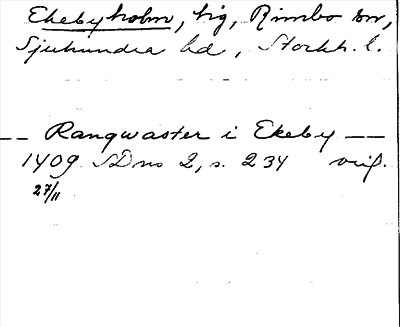 Ekebyholm, hg, Rimbo sn,
Sjuhundra hd, Stockh. l.
-- Rangwaster i Ekeby --
1409 SDns 2, s. 234 orig.
27/11